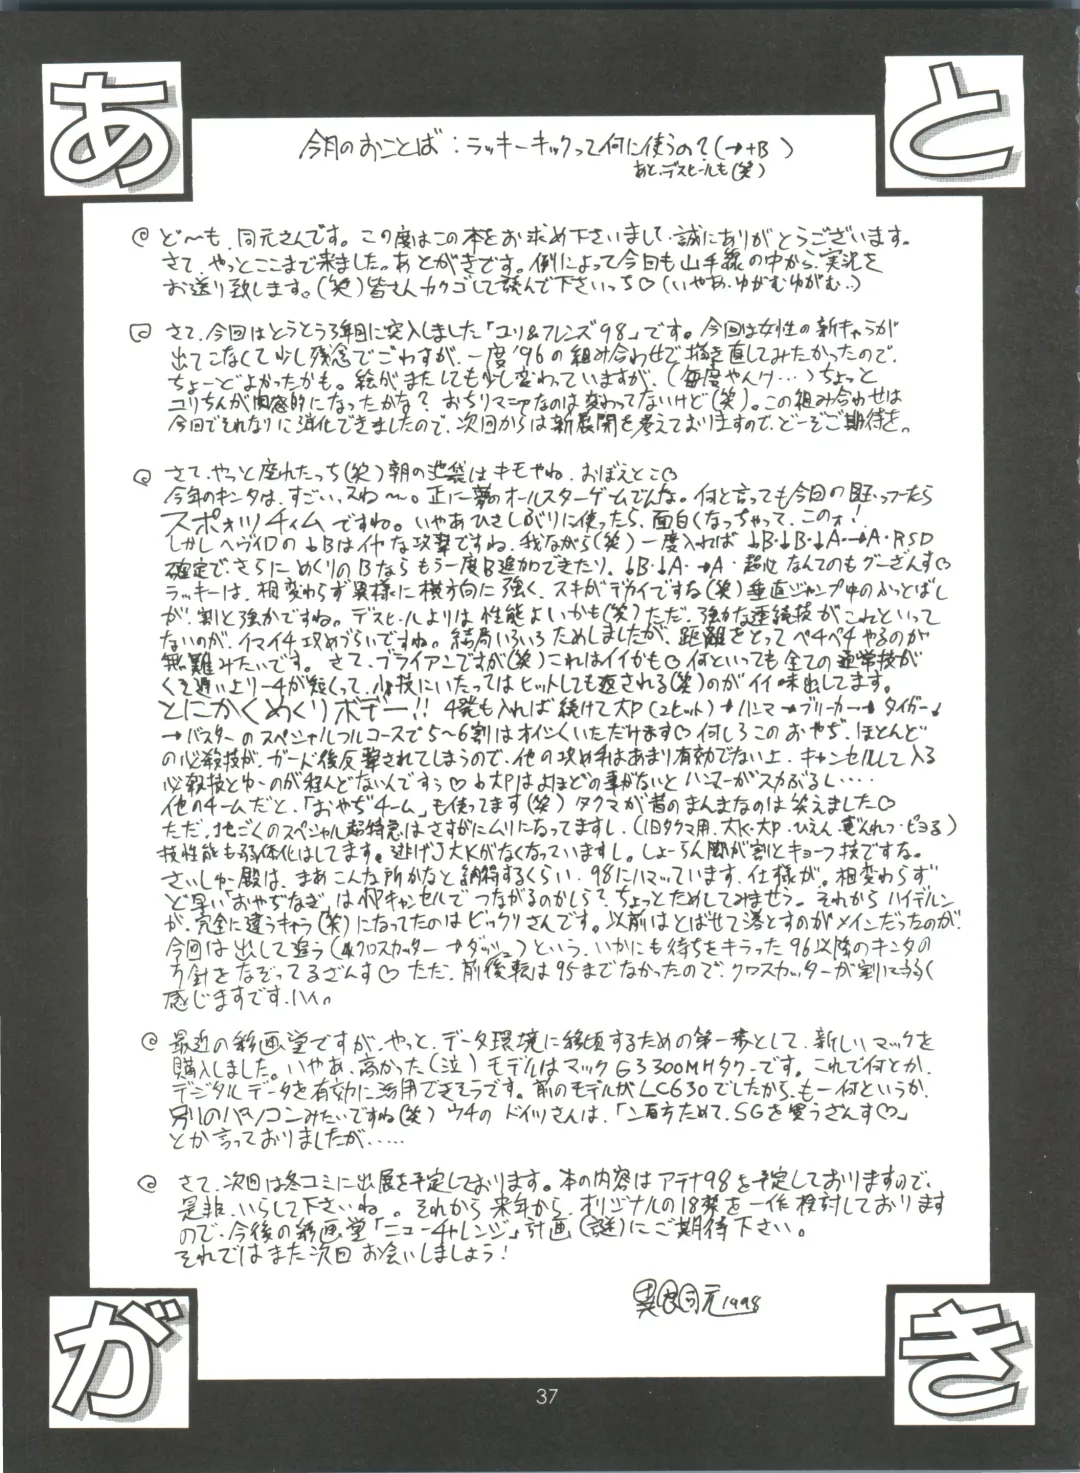 あ と
今月のおことば：ラッキーキックって何に使うの？（→+B ）
あと、デスヒールも（笑）
ど〜も、同元さんです。この度はこの本をお求め下さいまして、誠にありがとうございます。
さて、やっとここまで来ました。あとがきです。例によって今回も山手線の中から、実況を
お送り致します。（笑）皆さんカクゴして読んで下さいっち♡（いやあ、ゆがむゆがむ。）
さて、今回はとうとう3年目に突入しました「ユリ&フレンズ98」です。今回は女性の新キャラが
出てこなくて少し残念でごわすが、一度'96の組み合わせで描き直してみたかったので、
ちょーどよかったかも。絵がまたしても少し変わっていますが、（毎度やんけ…）ちょっと
ユリちんが肉感的になったかな？おちりマニアなのは変わってないけど（笑）。この組み合わせは
今回でそれなりに消化できましたので、次回からは新展開を考えておりますので、どーぞご期待を。
さて、やっと座れたっち（笑）朝の池袋はキモやね、おぼえとこ♡
今年のキンタは、すごいっスね〜。正に夢のオールスターゲームでんな。何と言っても今回の目玉っつーたら
スポォツチィムですね。いやあひさしぶりに使ったら、面白くなっちゃって、このォ！
しかしヘヴィDの↓Bはイヤな攻撃ですね、我ながら（笑）一度入れば ↓B・↓B・↓A・→A・RSD
確定で、さらにめくりのBならもう一度B追加できたり。↓B・↓A・→A・超心 なんてのもグーざんす♡
ラッキーは、相変わらず異様に横方向に強く、スキがデカイでする（笑）垂直ジャンプ中のふっとばし
が、割と強かですね。デスヒールよりは性能よいかも（笑）ただ、強力な連続技がこれといって
ないのが、イマイチ攻めづらいですね。結局いろいろためしましたが、距離をとってペチペチやるのが
無難みたいです。さて、ブライアンですが（笑）これはイイかも♡何といっても全ての通常技が
くそ遅い上リーチが短くって、小技にいたってはヒットしても返される（笑）のがイイ味出してます。
とにかくめくりボデー!! 4発も入れば続けて大P（2ヒット）→ハンマ→ブリーカー→タイガー↓
→バスターのスペシャルフルコースで5〜6割はオイシくいただけます♡何しろこのおやぢ、ほとんど
の必殺技が、ガード後反撃されてしまうので、他の攻め手はあまり有効でない上、キャンセルして入る
必殺技とゆーのが殆んどないんですぅ♡ 大Pはよほどの事がないとハンマーがスカぶるし・・・・
他のチームだと、「おやぢチーム」も使ってます（笑）タクマが昔のまんまなのは笑えました♡
ただ、地ごくのスペシャル超特急はさすがにムリになってますし、（旧タクマ用、大K・大P・ひえん・ざんれつ・ピヨる）
技性能も弱体化はしてます。逃げJ大Kがなくなっていますし。しょーらん脚が割とキョーフ技ですな。
さいしゅー殿は、まあこんな所かなと納得するくらい、98にハマっています、仕様が。相変わらず
ど早い"おやぢなぎ"は小Pキャンセルでつながるのかしら？ちょっとためしてみませう。それからハイデルン
が、完全に違うキャラ（笑）になってたのはビックリさんです。以前はとばせて落とすのがメインだったのが、
今回は出して追う（クロスカッター→ダッシュ）という、いかにも待ちをキラった96以降のキンタの
方針をなぞってるざんす♡ ただ、前後転は95までなかったので、クロスカッターが割に弱く
感じますです、ハイ。
最近の彩画堂ですが、やっと、データ環境に移項するための第一歩として、新しいマックを
購入しました。いやあ、高かった（泣）モデルはマックG3 300MHタワーです。これで何とか、
デジタルデータを有効に活用できそうです。前のモデルがLC630でしたから、も一何というか、
別のパソコンみたいですね（笑）ウチのドイツさんは、「ン百万ためて、SGを買うざんす♡」
とか言っておりましたが・・・・・
さて、次回は冬コミに出展を予定しております。本の内容はアテナ98を予定しておりますので、
是非、いらして下さいね。それから来年から、オリジナルの18禁を一作検討しております
ので、今後の彩画堂「ニューチャレンジ」計画（謎）にご期待下さい。
それではまた次回お会いしましょう！
同元 1998
が き
37